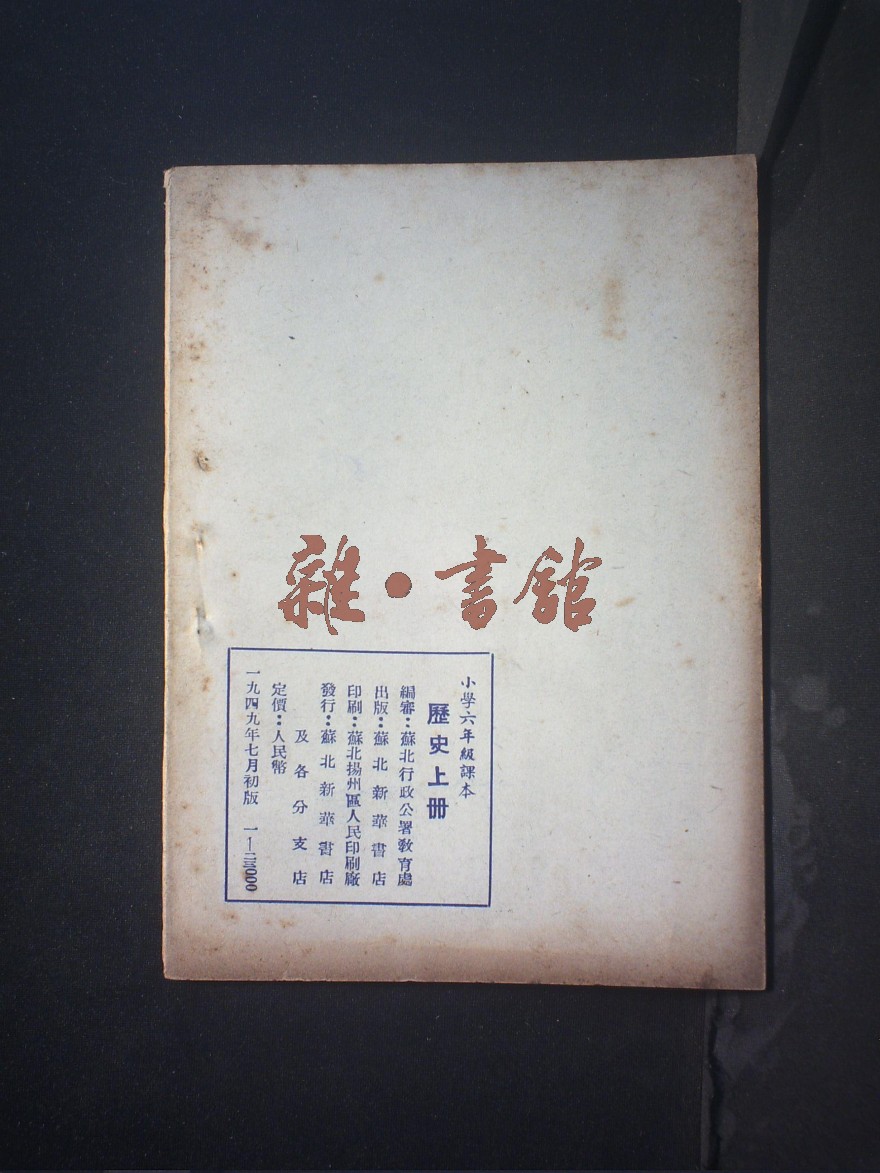 雜·書館
小學六年級課本
歷史上册
編審：蘇北行政公署教育處
出版：蘇北新華書店
印刷：蘇北揚州區人民印刷廠
發行：蘇北新華書店
及各分支店
定價：人民幣
一九四九年七月初版 一—二三〇〇〇